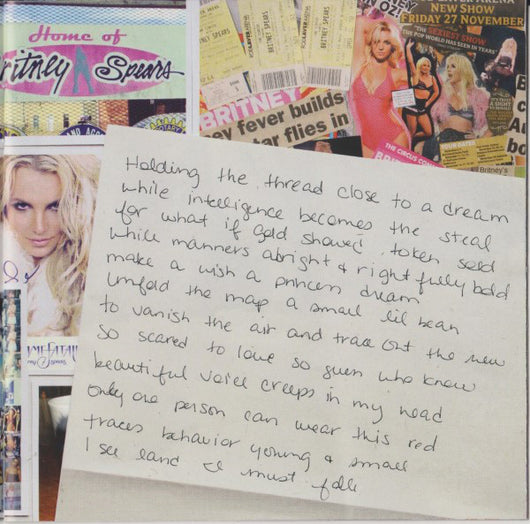 Home of
Britney Spears
BRITNEY SPEARS
BRITNEY SPEARS
NEW SHOW
FRIDAY 27 NOVEMBER
THE SEXIEST SHOW
THE POP WORLD HAS SEEN IN YEARS
BRITNEY
ey fever builds
tar flies in
THE CIRCUS
Britney's
Holding the thread close to a dream
while intelligence becomes the steal
for what if gold showed token seed
while manners abright & rightfully bold
make a wish a princess dream
unfold the map a small lil bean
to vanish the air and trace out the new
so scared to love so guen who knew
beautiful voice creeps in my head
Only one person can wear this red
traces behavior young & small
I see land I must fall